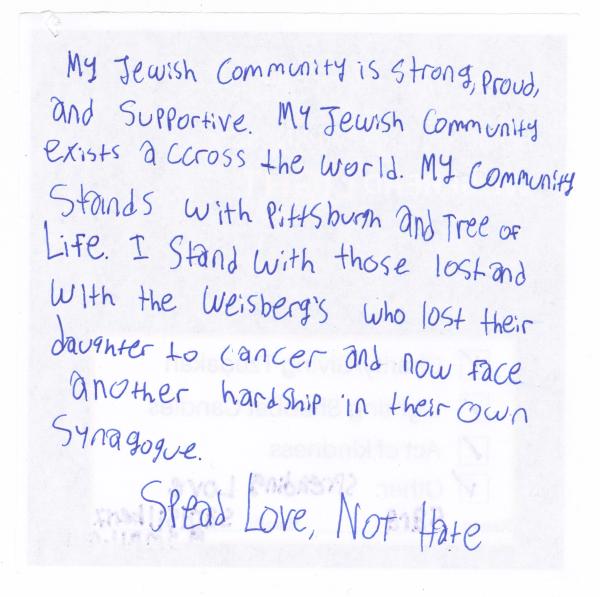 My Jewish Community is strong, proud,
and supportive. My Jewish Community
exists accross the world. My Community
Stands with Pittsburgh and Tree of
Life. I stand with those lost and
with the Weisberg's who lost their
daughter to cancer and now face
another hardship in their own
Synagogue.
Spead Love, Not Hate
Act of kindness
Other: Spreading Love